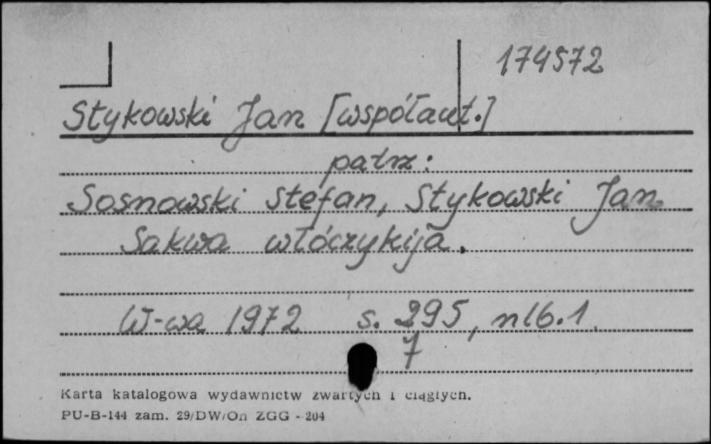 174572
Stykowski Jan [współaut.]
patrz:
Sosnowski Stefan, Stykowski Jan
Sakwa włóczykija.
W-wa 1972 s. 295, nlb.1.
7
Karta katalogowa wydawnictw zwartych i ciągłych.
PU-B-144 zam. 29/DW/On ZGG - 204